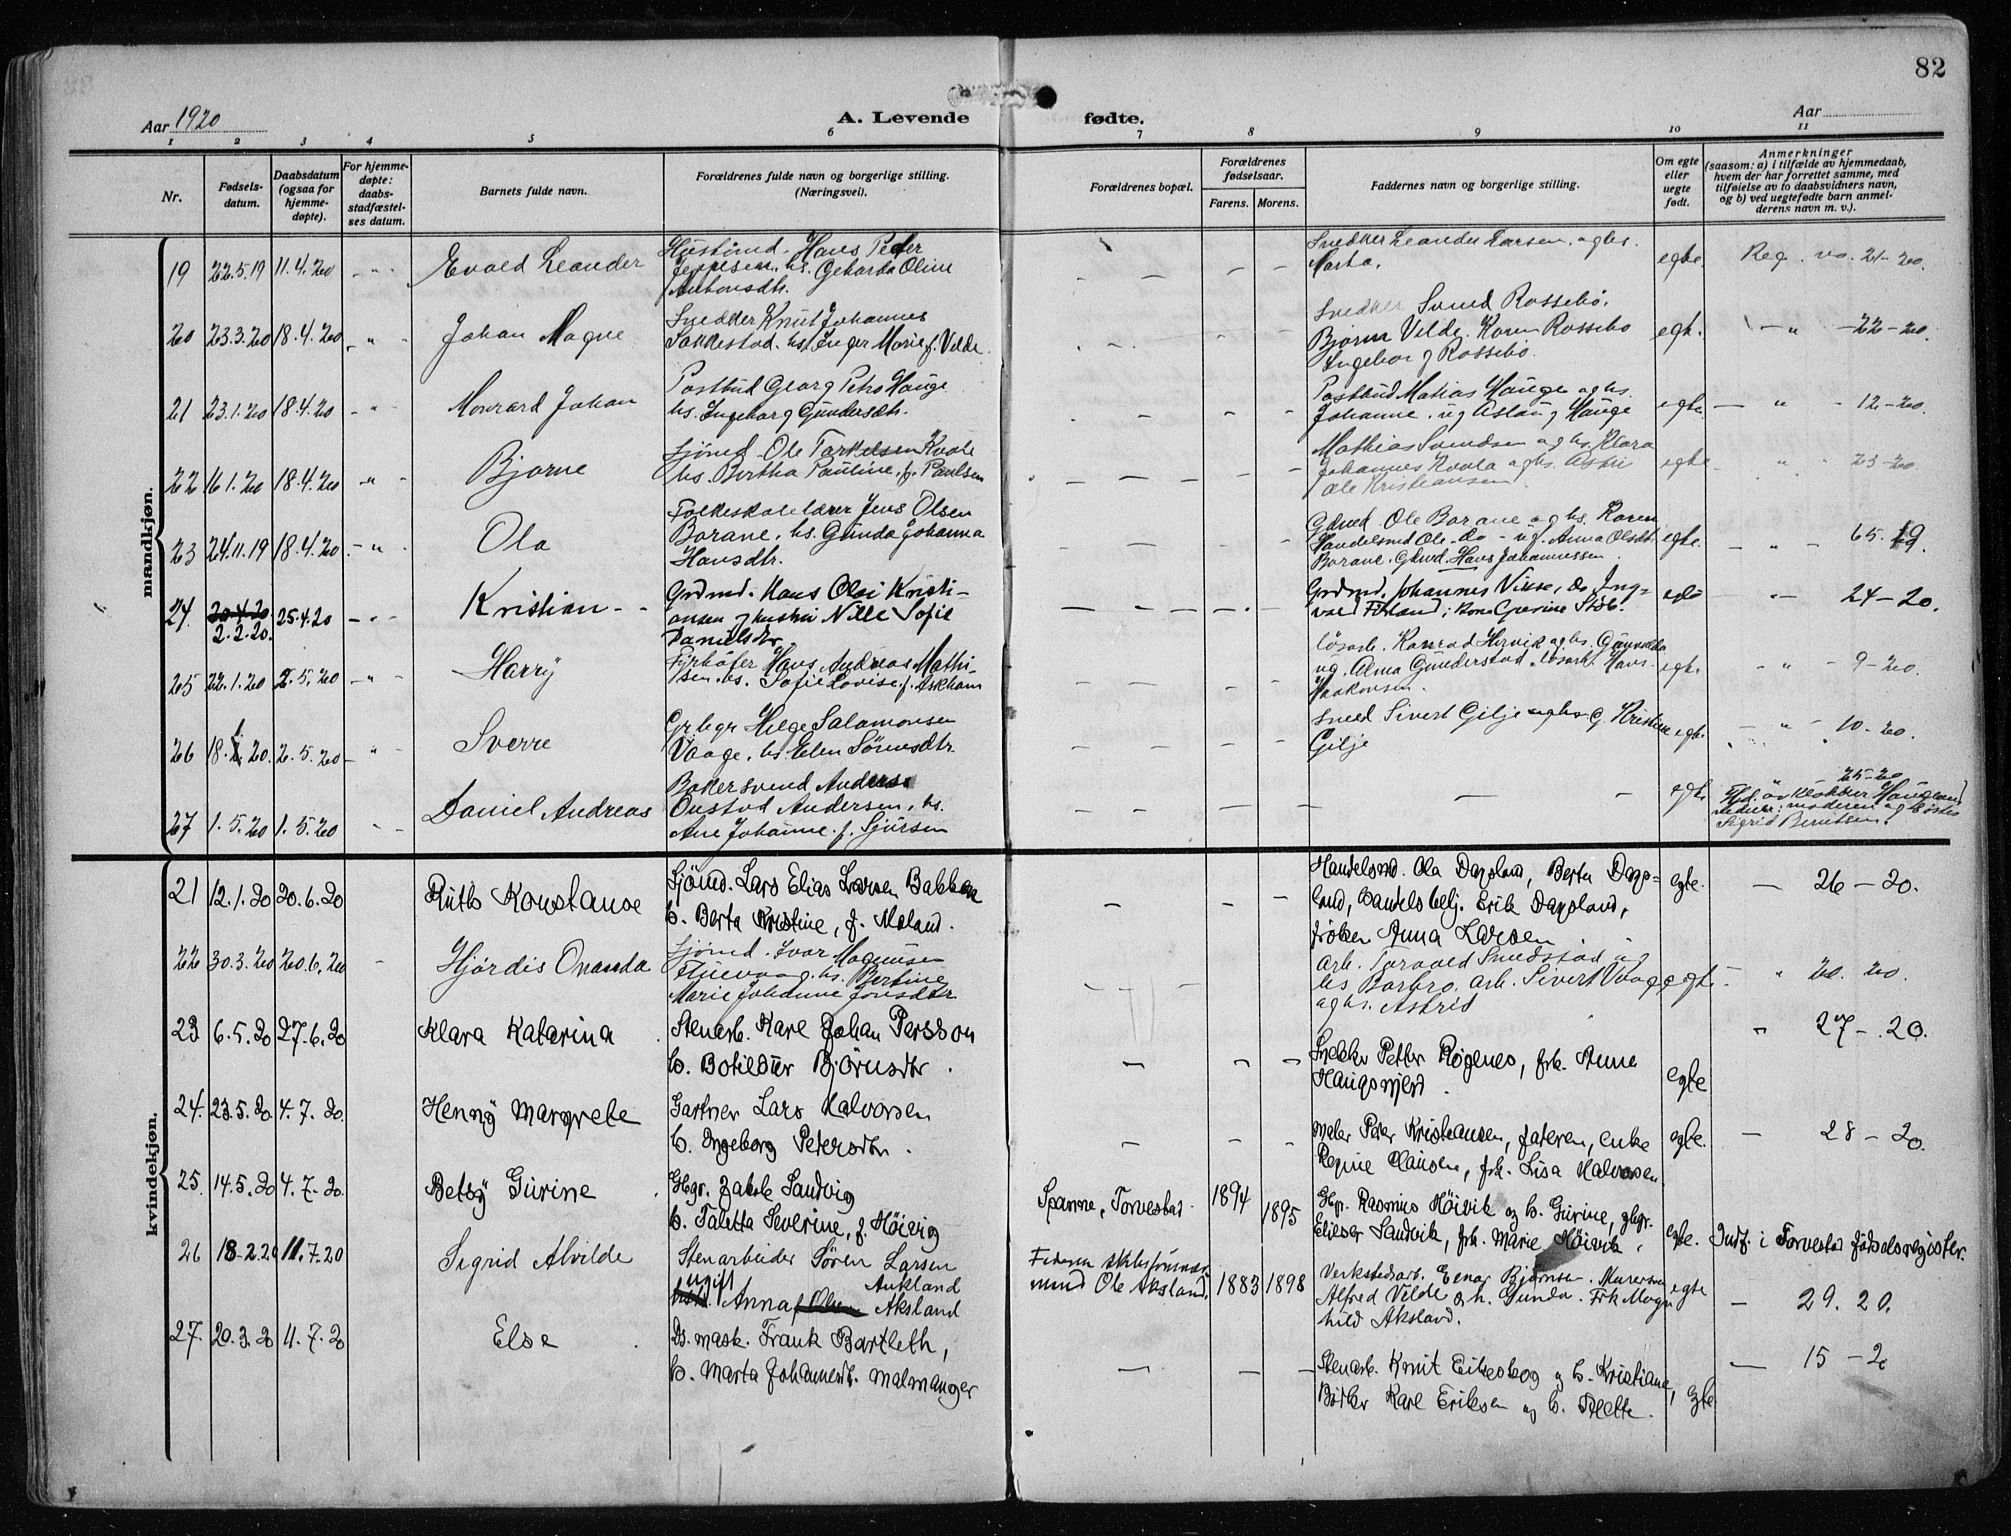 82
Aar 1920
A. Levende fødte.
Aar
1 2 3 4 5 6 7 8 9 10 11
Nr.
Fødsels-
datum.
Daabsdatum
(ogsaa for
hjemme-
døpte).
For hjemme-
døpte:
daabs-
stadfæstel-
ses datum.
Barnets fulde navn.
Forældrenes fulde navn og borgerlige stilling.
(Næringsvei).
Forældrenes bopæl.
Forældrenes
fødselsaar.
Farens. Morens.
Faddernes navn og borgerlige stilling.
Om egte
eller
uegte
født.
Anmerkninger
(saasom: a) i tilfælde av hjemmedaab,
hvem der har forrettet samme, med
tilføielse av to daabsvidners navn,
og b) ved uegtefødte barn anmel-
derens navn m. v.).
mandkjøn.
19 22.5.19 11.4.20 - " - Evald Leander
Hans Peder
Jeppesen. hs. Geharda Oline
Antonsdtr.
Snedker Leander Larsen. og hs.
Marta.
egte. Reg. no. 21-20.
20 23.3.20 18.4.20 - " - Johan Magne
Snedker Knut Johannes
Sakkestad. hs. Inger Marie f. Velde.
Snedker Svend Rossebø.
Bjarne Velde. Karen Rossebø
Ingeborg Rossebø.
egte. - " - 22-20.
21 23.1.20 18.4.20 - " - Monrard Johan
Postbud Georg Petro Hauge
hs. Ingeborg Gundersdtr.
Postbud Matias Hauge og hs.
Johanne. ug Aslaug Hauge
egte. - " - 12-20.
22 16.1.20 18.4.20 - " - Bjarne
Sjømd. Ole Torkelsen Kvale
hs. Bertha Pauline. f. Paulsen
Mathias Svendsen og hs. Klara
Johannes Kvala og hs.
Ole Kristiansen
egte. " 23-20
23 24.11.19 18.4.20 - " - Ola
Folkeskolelærer Jens Olsen
Borane. hs. Gunda Johanna
Hansdtr.
Gdmd. Ole Borane og hs. Karen
Handelsmd Ole do - ug. Anna Olsdtr
Borane. Gdmd. Hans Johannessen.
egte. - " - 65. 19.
24 20.4.20 2.2.20. 25.4.20 - " - Kristian
Grdmd. Hans Olai Kristi-
ansen og hustru Nille Sofie
Danielsdtr.
Grdmd. Johannes Vikse, do Ing-
vald
egte - " - 24-20.
25 22.1.20 2.5.20 - " - Harry
Fyrbøter Hans Andreas Mathi-
sen. hs. Sofie Lovise. f. Askham
løsarb. Konrad Hervik og hs. Gunvalda
ug. Alma Gunderstad. løsarb. Hans
Haakonsen.
egte. " - 9-20.
26 18.1.20. 2.5.20 - " Sverre
Gr.bgr Helge Salamonsen
Vaage. hs. Elen Sørensdtr.
Sivert Gilje og hs.
Gilje
egte. - " - 10-20.
27 1.5.20 1.5.20 - - Daniel Andreas
Bakersvend Andreas
Onstad Andersen. hs.
Ane Johanne. f. Sjursen
- - egte
25-20
Hjd. av klokker Haugland
vidner: moderen og
Sigrid Berntsen.
kvindekjøn.
21 12.1.20 20.6.20 Ruth Konstanse
Sjömd. Lars Elias Larsen Bakken
h. Berta Kristine, f. Meland.
Handelsmd. Ola Dagsland, Berta Dags-
land, handelsbetj. Erik Dagsland,
frøken Anna Larsen
egte. - 26-20.
22 30.3.20 20.6.20 - Hjördis Onanda
Sjømd. Ivar Magnussen
hs. Bertine
Marie Johanne Jonsdtr
arb. Torvald Sundstad og
hs Barbro. arb. Sivert Vaage
og hs. Astrid
egte - " 20. 20.
23 6.5.20 27.6.20 Klara Katarina
Stenarb. Karl Johan Persson
h. Botildur Björnsdtr.
Snekker Petter Røgenes, frk. Anna
egte " 27-20.
24. 23.5.20 4.7.20. Henny Margrete
Gartner Lars Halvorsen
h. Ingeborg Petersdtr.
Maler Peter Kristiansen, faderen, enke
Regine Clausen, frk. Lisa Halvorsen
egte. - 28-20.
25. 14.5.20 4.7.20. Betsy Gurine
Gbgr. Jakob Sandvig
h. Taletta Severine, f. Höivig
Spanne, Torvestad. 1894 1895
Gbgr. Rasmus Höivik og h. Gurine, gbgr.
Elieser Sandvik, frk. Marie Höivik.
egte. Indf. i Torvestad fødselsregister.
26 18.2.20 11.7.20 Sigrid Alvilde
Stenarbeider Søren Larsen
Aukland
ugift Anna Aksland
mand Ole Aksland. 1883 1898
Verkstedsarb. Einar Bjørnsen. Murersv.
Alfred Velde og h. Gunda. Frk Mag-
hild Aksland.
egte - 29. 20.
27. 20.3.20 11.7.20 Else
Ds. mask. Frank Bartleth,
h. Marta Johannesdtr. Malmanger
Stenarb. Knut Eikeskog og h. Kristiane,
Bødker Karl Eriksen og h. Tilette.
egte. - 15-20